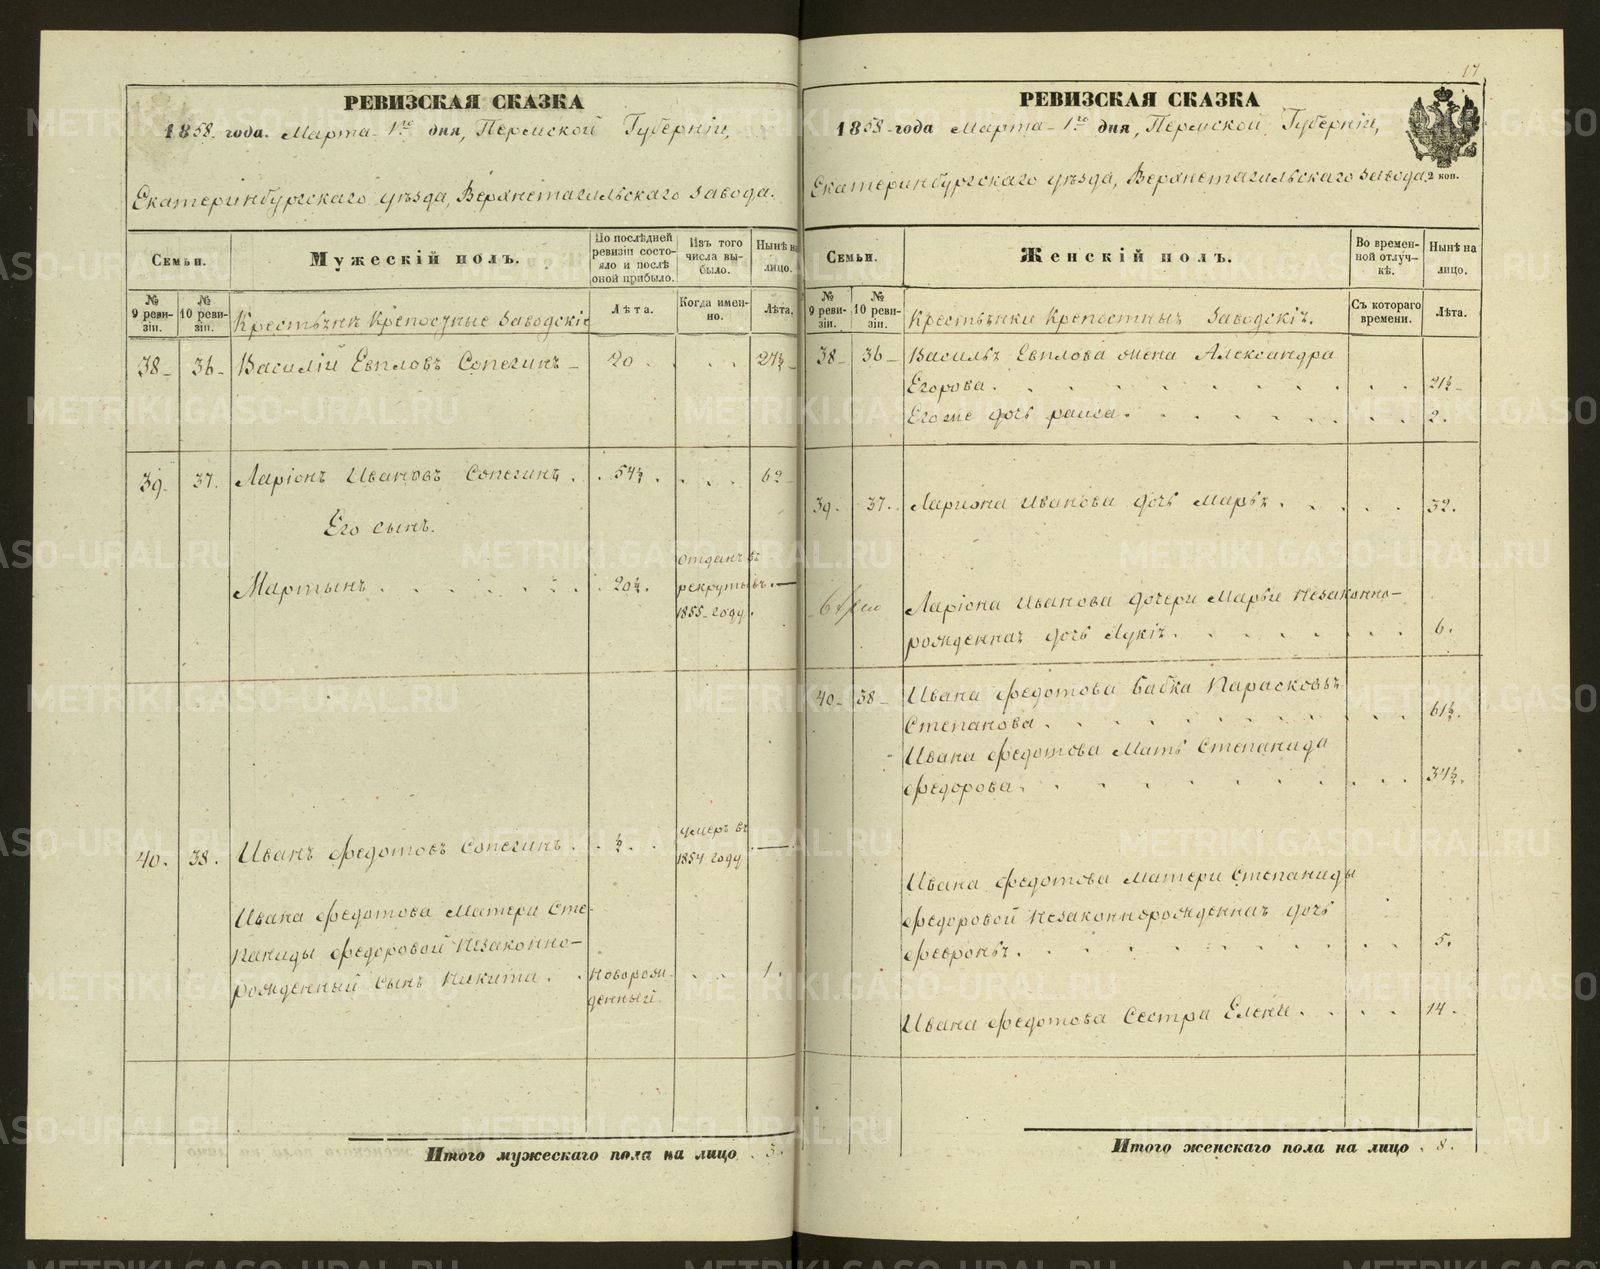 РЕВИЗСКАЯ СКАЗКА
1858 года. Марта 1го дня, Пермской Губерніи,
Екатеринбургскаго уѣзда, Верхнетагильскаго Завода.
Семьи.
Мужескій полъ.
По послѣдней ревизіи состояло и послѣ оной прибыло.
Изъ того числа выбыло.
Нынѣ на лицо.
№ 9 ревизіи.
№ 10 ревизіи.
Крестьяне Крепостные Заводскіе
Лѣта.
Когда именно.
Лѣта.
38 36 Василій Евпловъ Сопегинъ 20 27½
39. 37. Ларіонъ Ивановъ Сопегинъ. 54½. 62
Его сынъ.
Мартынъ 20½. отданъ въ
рекруты въ. —
1855 году.
40. 38. Иванъ Федотовъ Сопегинъ. ½. умеръ въ
1854 году —
Ивана Федотова Матери Сте-
паниды Федоровой Незаконно-
рожденный сынъ Никита. Новорож-
денный. 1.
Итого мужескаго пола на лицо 3.
17
РЕВИЗСКАЯ СКАЗКА
1858 года Марта 1го дня, Пермской Губерніи,
Екатеринбургскаго уѣзда, Верхнетагильскаго Завода.
2 коп.
Семьи.
Женскій полъ.
Во временной отлучкѣ.
Нынѣ на лицо.
№ 9 ревизіи.
№ 10 ревизіи.
Крестьянки Крепостныя Заводскія.
Съ котораго времени.
Лѣта.
38 36 Василья Евплова жена Александра
Егорова. 21½
Его же дочь раиса. 2.
39. 37. Лариона Иванова дочь Марья. 32.
Ларіона Иванова дочери Марьи Незаконно-
рожденная дочь Лукія. 6.
40 38 Ивана Федотова бабка Парасковья
Степанова. 61½.
Ивана Федотова Мать Степанида
Федорова. 34½.
Ивана Федотова Матери Степаниды
Федоровой Незаконнорожденная дочь
Февронья. 5.
Ивана Федотова Сестра Елена. 14.
Итого женскаго пола на лицо 8.
METRIKI.GASO-URAL.RU